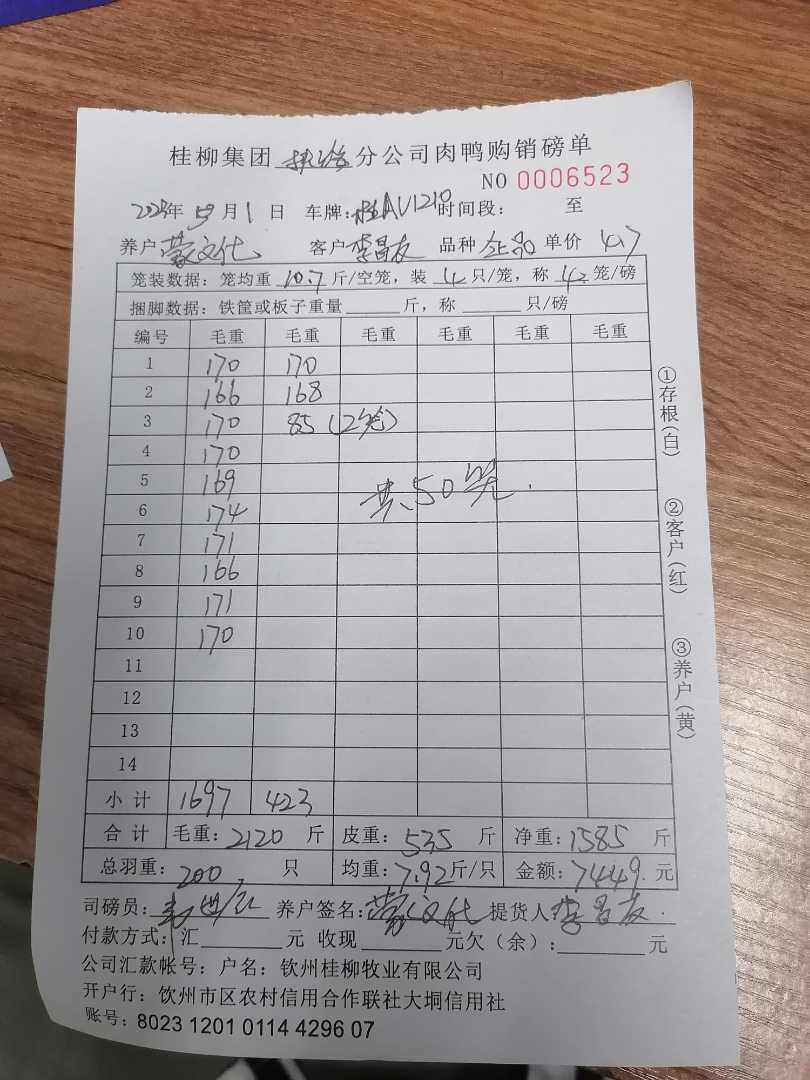 桂柳集团 分公司肉鸭购销磅单
NO 0006523
年 月 1 日 车牌: 时间段: 至
养户 蒙文化 客户 李昌友 品种 单价 4.7
笼装数据: 笼均重 10.7 斤/空笼, 装 4 只/笼, 称 笼/磅
捆脚数据: 铁筐或板子重量 斤, 称 只/磅
编号 毛重 毛重 毛重 毛重 毛重 毛重
1 170 170
2 166 168
3 170 85 (2笼)
4 170
5 169
共50笼.
6 174
7 171
8 166
9 171
10 170
11
12
13
14
小计 1697 423
合计 毛重: 2120 斤 皮重: 535 斤 净重: 1585 斤
总羽重: 200 只 均重: 7.92 斤/只 金额: 7449. 元
①存根(白)
②客户(红)
③养户(黄)
司磅员: 养户签名: 蒙文化 提货人 李昌友
付款方式: 汇 元 收现 元欠(余): 元
公司汇款帐号: 户名: 钦州桂柳牧业有限公司
开户行: 饮州市区农村信用合作联社大垌信用社
账号: 8023 1201 0114 4296 07